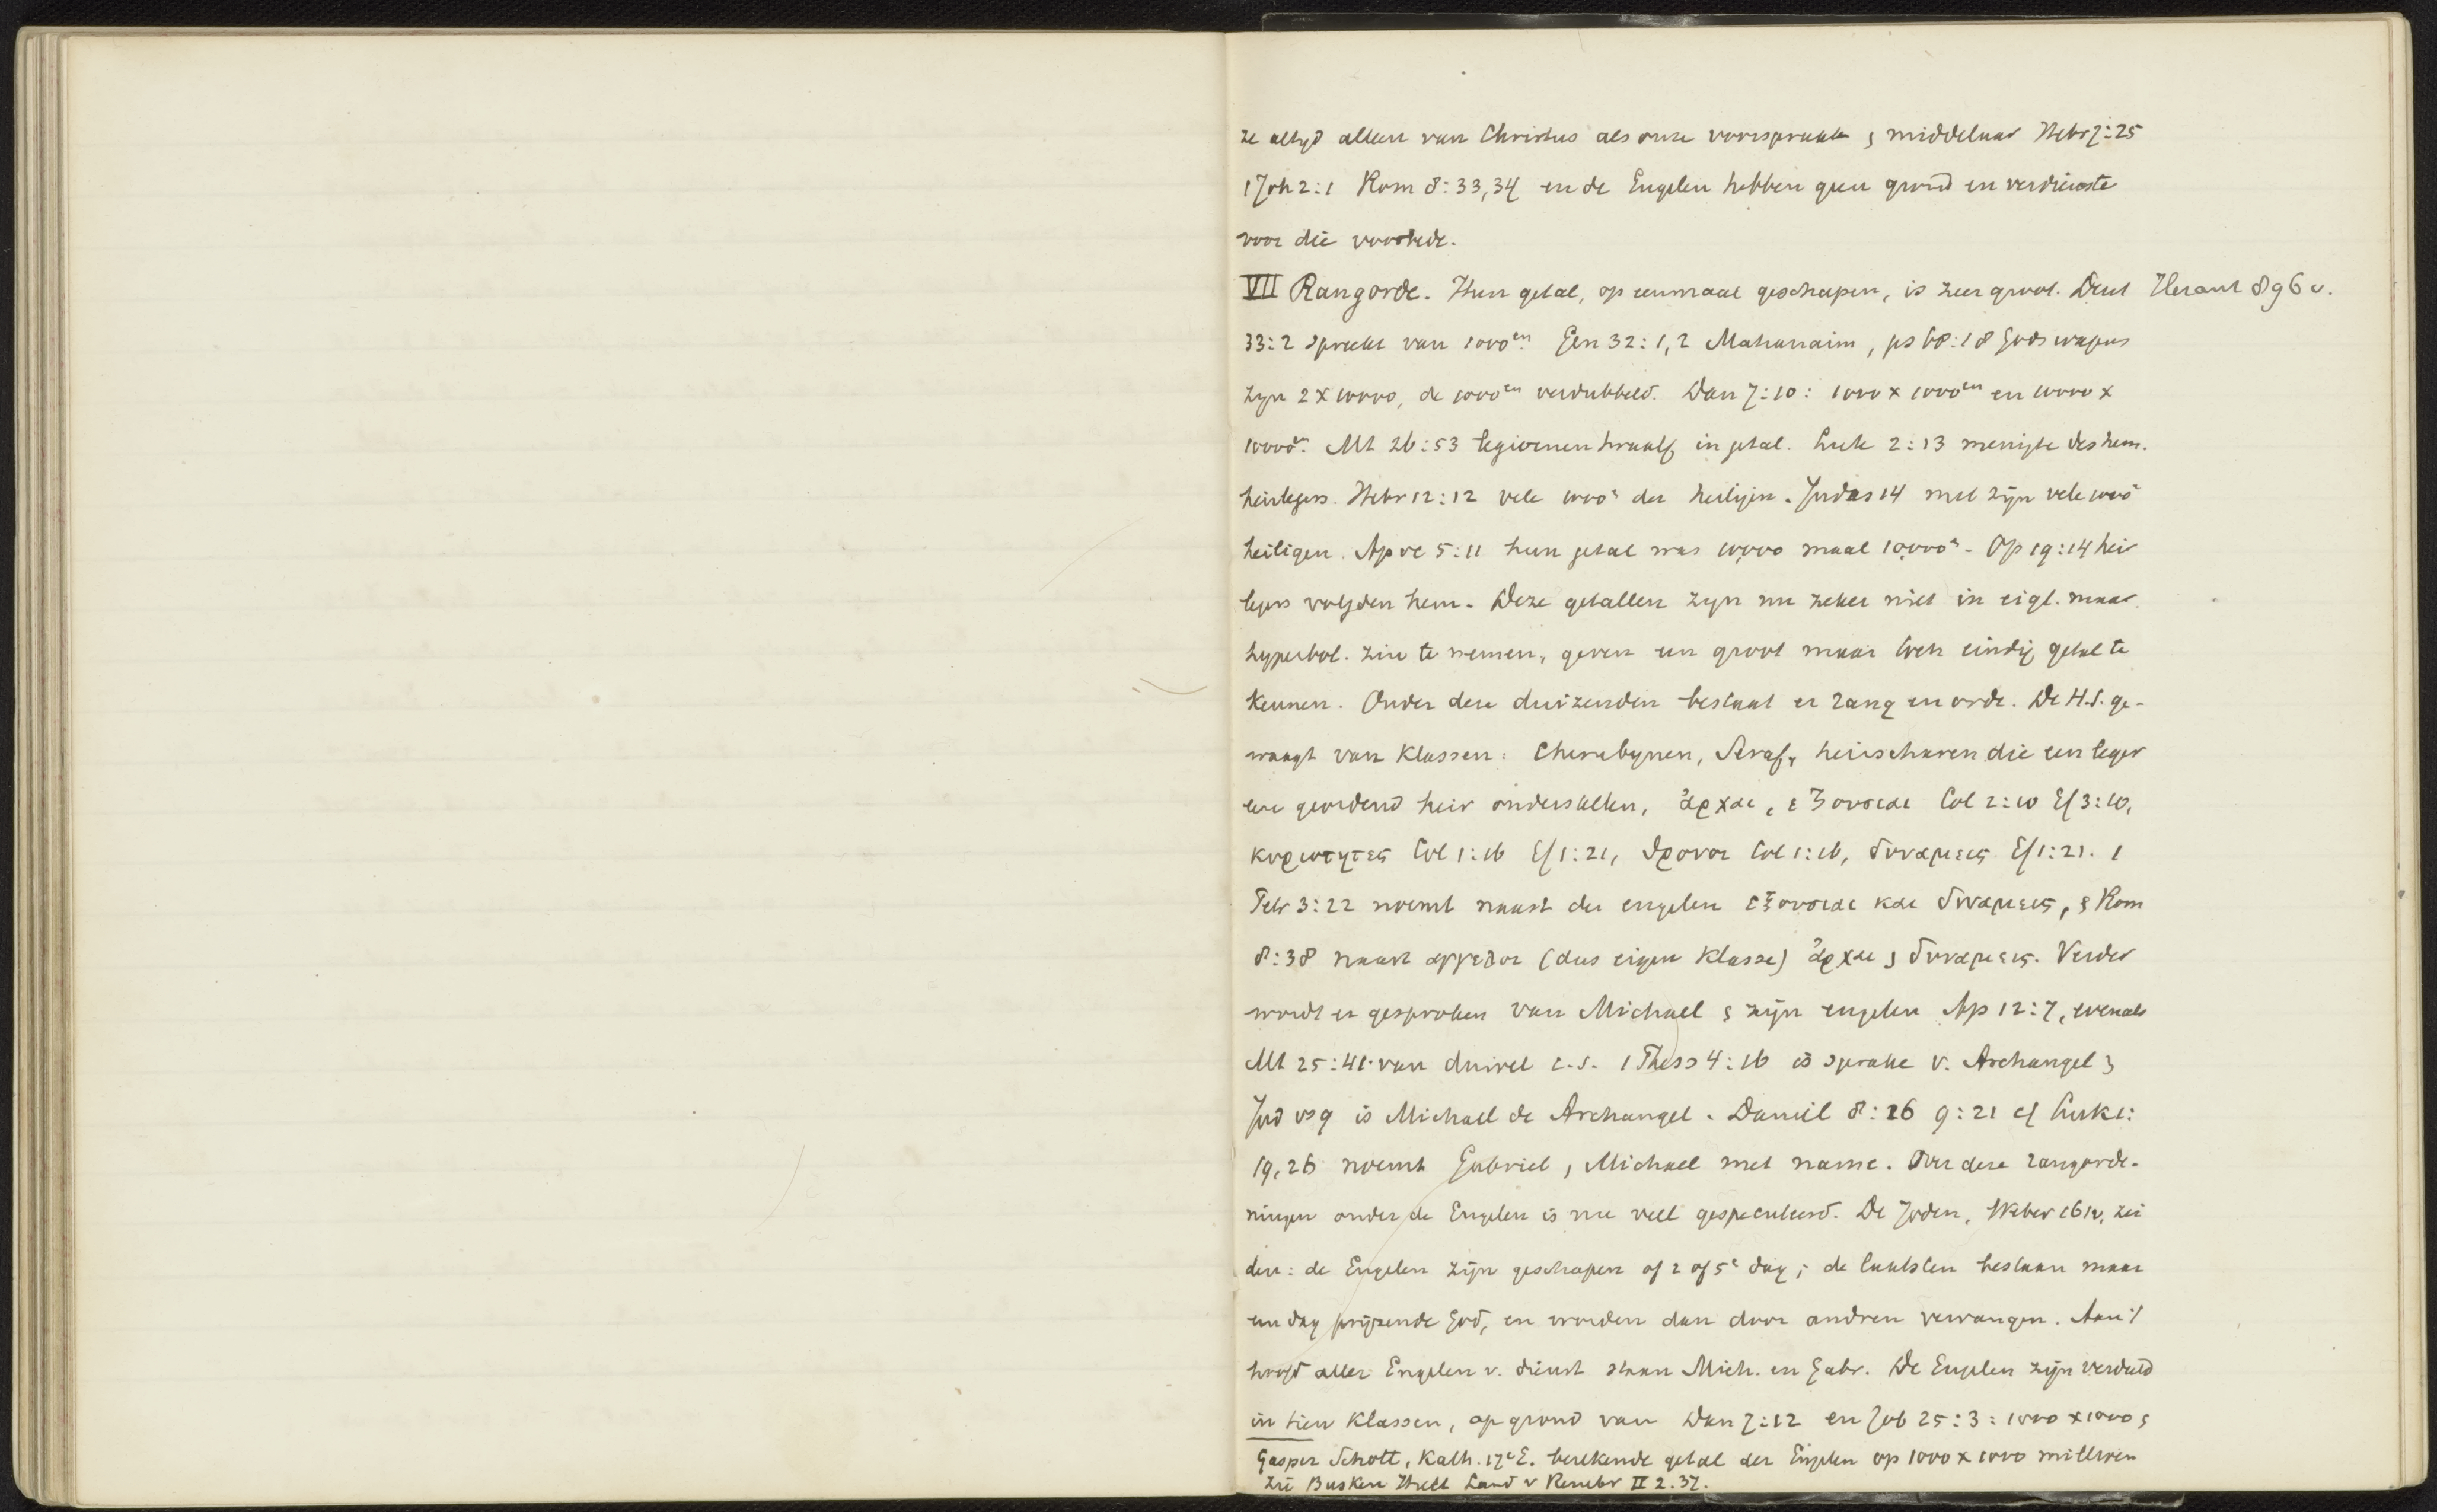 ze altyd alleen van Christus als onze voorspraak & middelaar Hebr 7:25
1 Joh 2:1 Rom 8:33,34 en de Engelen hebben geen grond en verdienste
voor die voorbede.
VII Rangorde. Hun getal, op eenmaal geschapen, is zeer groot. Deut Heraut 896 v.
33:2 spreekt van 1000en. Gen 32:1,2 Mahanaim, ps 68:18 Gods wagens
zyn 2 x 10000, de 1000en verdubbeld. Dan 7:10: 1000 x 1000en en 10000 x
10000en. Mt 26:53 legioenen twaalf in getal. Luk 2:13 menigte des hem.
heirlegers. Hebr 12:12 vele 1000s der heiligen. Judas 14 met zijn vele 1000s
heiligen. Apoc 5:11 hun getal was 10,000 maal 10,000s. Op 19:14 heir
legers volgden hem. Deze getallen zyn nu zeker niet in eigl. maar
hyperbol. zin te nemen, geven een groot maar toch eindig getal te
kennen. Onder deze duizenden bestaat er rang en orde. De H.S. ge-
waagt van klassen: Cherubynen, Seraf, heirscharen die een leger
een geordend heir onderstellen, ἀρχαι, ἐξουσιαι Col 2:10 Ef 3:10,
κυριοτητες Col 1:16 Ef 1:21, θρονοι Col 1:16, δυναμεις Ef 1:21. 1
Petr 3:22 noemt naast de engelen ἐξουσιαι και δυναμεις, & Rom
8:38 naast αγγελοι (dus eigen klasse) ἀρχαι & δυναμεις. Verder
wordt er gesproken van Michael & zijn engelen Ap 12:7, evenals
Mt 25:41 van duivel c.s. 1 Thess 4:16 is sprake v. Archangel &
Jud vs 9 is Michael de Archangel. Daniel 8:16 9:21 cf Luk 1:
19,26 noemt Gabriel, Michael met name. Over deze rangorde-
ningen onder de Engelen is nu veel gespeculeerd. De Joden, Weber 161v, zei
den: de Engelen zijn geschapen of 2 of 5e dag; de laatsten bestaan maar
een dag prijzende God, en worden dan door andren vervangen. Aan 't
hoofd aller Engelen v. dienst staan Mich. en Gabr. De Engelen zijn verdeeld
in tien klassen, op grond van Dan 7:12 en Job 25:3: 1000 x 1000 &
Gasper Schott, Kath. 17e E. berekende getal der Engelen op 1000 x 1000 millioen
zie Busken Huet Land v Rembr II 2.37.